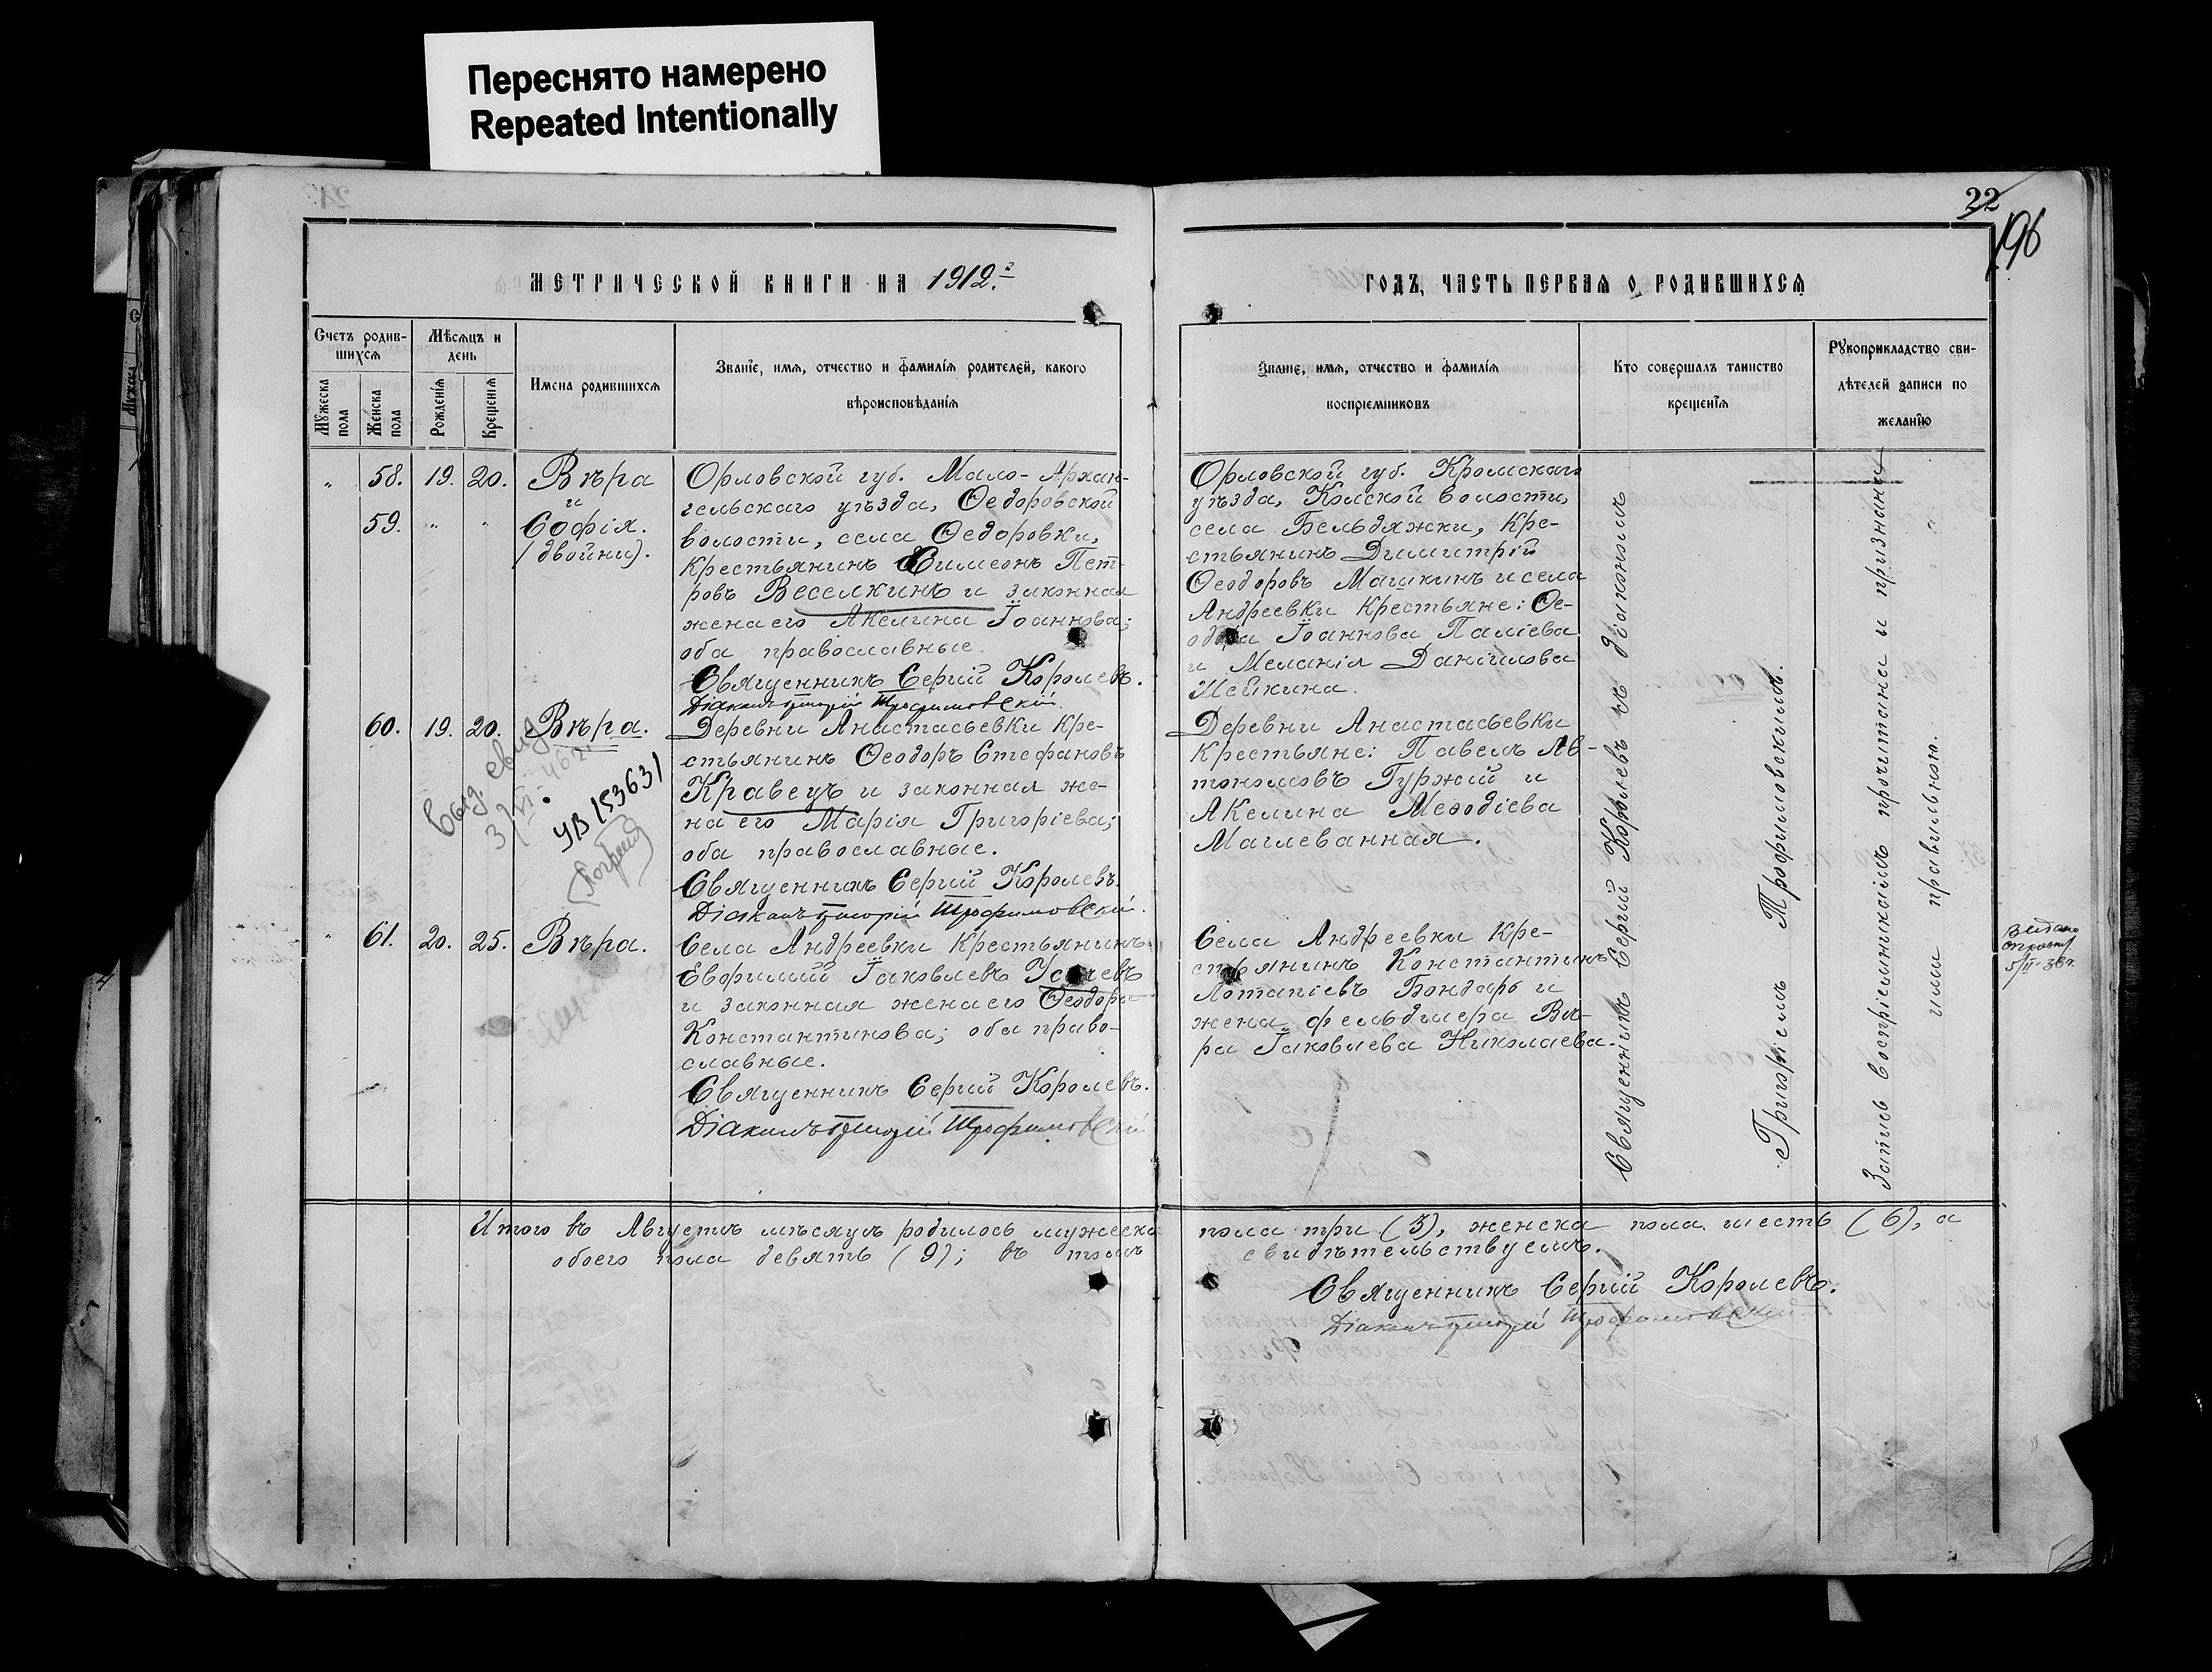 Переснято намерено
Repeated Intentionally
22
196
МЕТРИЧЕСКОЙ КНИГИ НА 1912.
ГОДЪ, ЧАСТЬ ПЕРВАЯ О РОДИВШИХСЯ
Счетъ родив-
шихся
Мужеска пола
Женска пола
Мѣсяцъ и
день
Рожденія
Крещенія
Имена родившихся
Званіе, имя, отчество и фамилія родителей, какого
вѣроисповѣданія
Званіе, имя, отчество и фамилія
воспріемниковъ
Кто совершалъ таинство
крещенія
Рукоприкладство сви-
дѣтелей записи по
желанію
" 58. 19. 20. Вѣра
и
59. " " Софія.
(двойни).
Орловской губ. Мало-Архан-
гельскаго уѣзда, Ѳедоровской
волости, села Ѳедоровки,
крестьянинъ Симеонъ Пет-
ровъ Веселкинъ и законная
жена его Акелина Іоаннова;
оба православные.
Священникъ Сергій Королевъ.
Діаконъ Григорій Трофимовскій.
Орловской губ. Кромскаго
уѣзда, Комской волости,
села Бельдяжки, кре-
стьянинъ Димитрій
Ѳеодоровъ Машкинъ и села
Андреевки крестьяне: Ѳе-
одора Іоаннова Паліева
и Меланія Даніилова
Шейкина.
60. 19. 20. Вѣра.
Выд. свид
3/VI-46г.
УВ 153631
Деревни Анастасьевки кре-
стьянинъ Ѳеодоръ Стефановъ
Кравецъ и законная же-
на его Марія Григоріева;
оба православные.
Священникъ Сергій Королевъ.
Діаконъ Григорій Трофимовскій.
Деревни Анастасьевки
крестьяне: Павелъ Ав-
тономовъ Гуржій и
Акелина Меѳодіева
Маглеванная.
" 61. 20. 25. Вѣра.
Села Андреевки крестьянинъ
Евфимій Іаковлевъ
и законная жена его Ѳеодора
Константинова; оба право-
славные.
Священникъ Сергій Королевъ.
Діаконъ Григорій Трофимовскій
Села Андреевки кре-
стьянинъ Константинъ
Потапіевъ Бондарь и
жена фельдшера Вѣ-
ра Іаковлева Николаева.
Священникъ Сергій Королевъ съ діакономъ
Григоріемъ Трофимовскимъ.
Запись воспріемникамъ прочитана и признана
ими правильною.
Видано
справку.
5/II-36г.
Итого въ Августѣ мѣсяцѣ родилось мужеска пола три (3), женска пола шесть (6), а
обоего пола девять (9); въ томъ свидѣтельствуемъ.
Священникъ Сергій Королевъ.
Діаконъ Григорій Трофимовскій